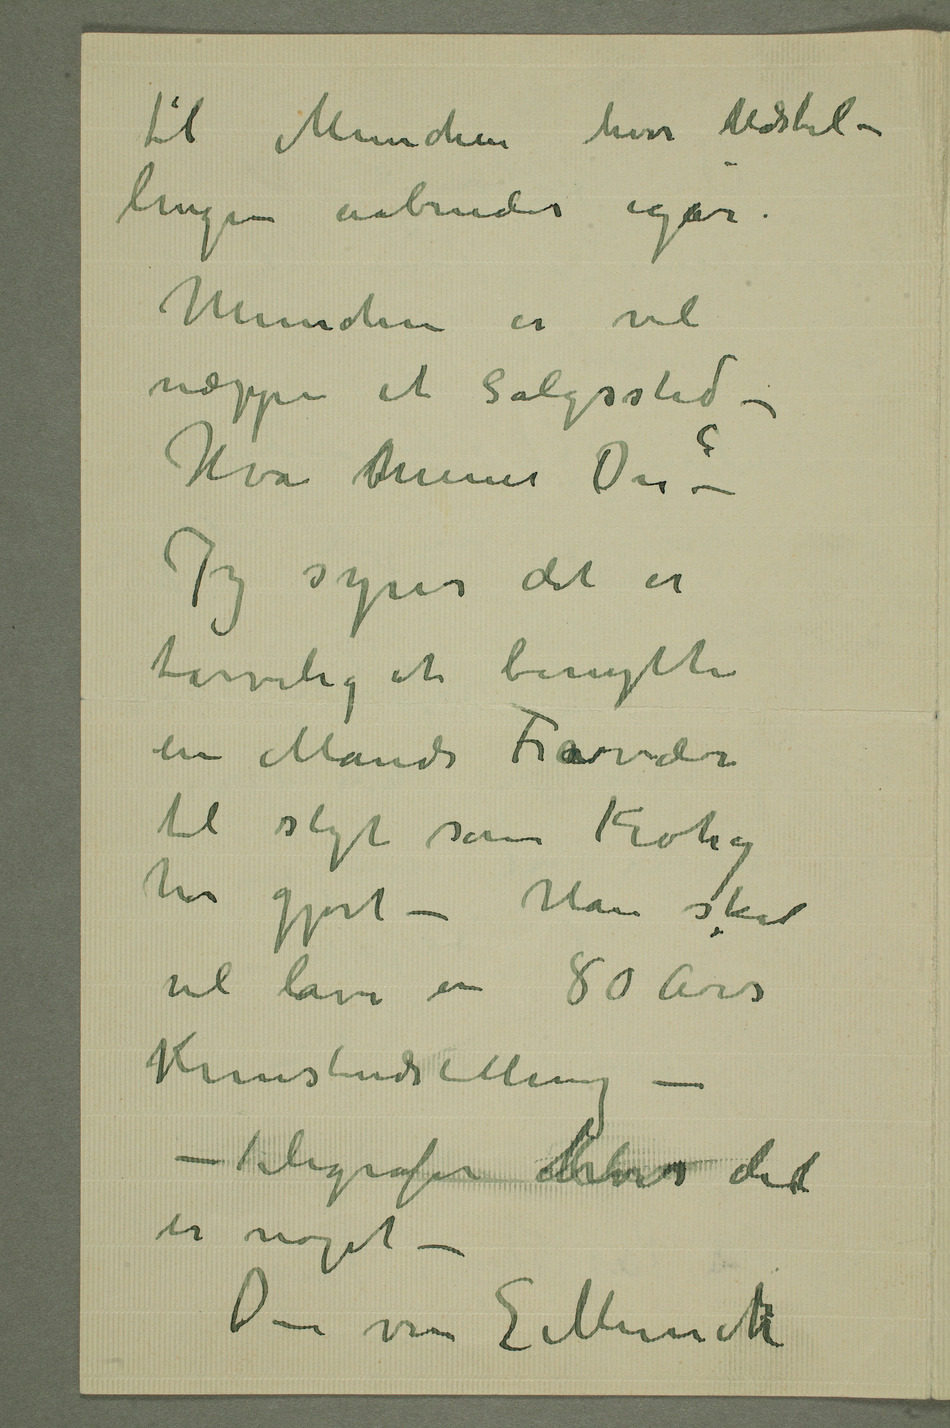 til München hvor Udstil-
lingen aabnedes igår.
München er vel
næppe et Salgssted –
Hva mener Du? –
Jeg synes det er
tarvelig at benytte
en Mands Fravær
til sligt som Krohg
har gjort – Han skal
vel lave en 80 Års
Kunstudstilling –
– telegrafer hvis det
er noget –
Din ven E Munch